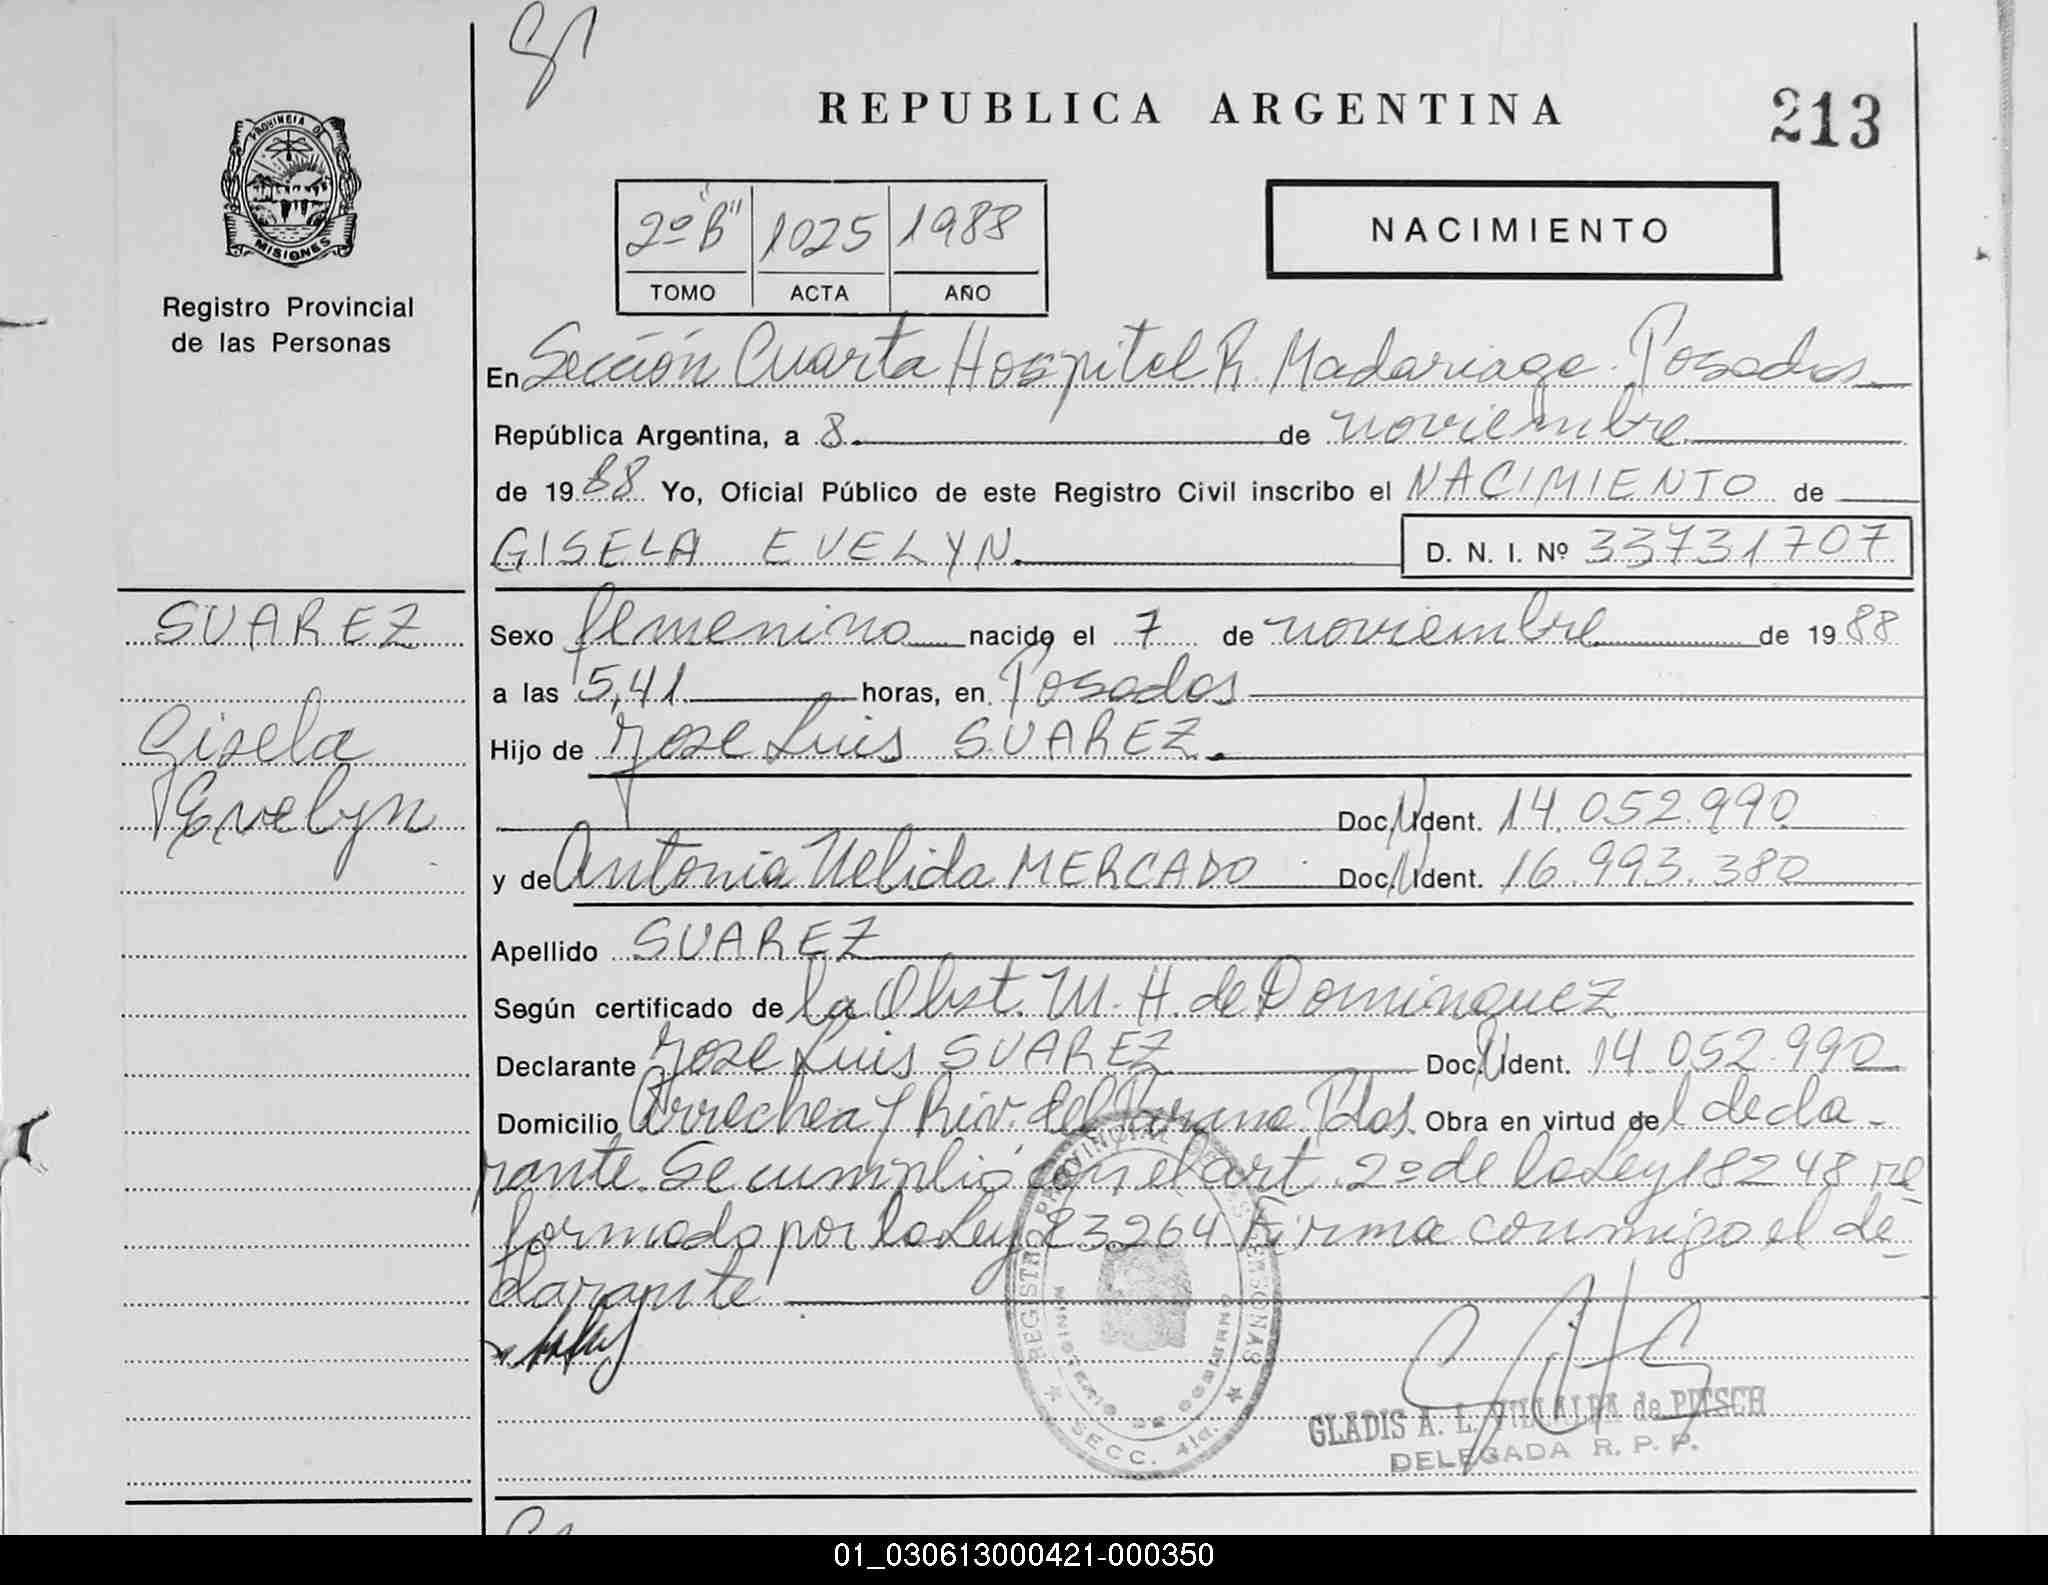 REPUBLICA ARGENTINA
213
PROVINCIA DE
MISIONES
Registro Provincial
de las Personas
2º "B" 1025 1988
TOMO ACTA AÑO
NACIMIENTO
En Sección Cuarta Hospital R. Madariaga. Posadas
República Argentina, a 8 de noviembre
de 1988 Yo, Oficial Público de este Registro Civil inscribo el NACIMIENTO de
GISELA EVELYN D. N. I. Nº 33731707
SUAREZ
Gisela
Evelyn
Sexo femenino nacido el 7 de noviembre de 1988
a las 5,41 horas, en Posadas
Hijo de Jose Luis SUAREZ.
Doc. Ident. 14.052.990
y de Antonia Nelida MERCADO Doc. Ident. 16.993.380
Apellido SUAREZ
Según certificado de la Obst. M. H. de Dominguez
Declarante Jose Luis SUAREZ Doc. Ident. 14.052.990
Domicilio Arrechea y Riv. del Parana Pdas. Obra en virtud del decla-
rante. Se cumplió con el art. 2º de la Ley 18248 re-
formada por la Ley 23264 Firma conmigo el de-
clarante
REGISTRO PROVINCIAL DE LAS PERSONAS
MINISTERIO DE GOBIERNO
SECC. 4ta.
GLADIS A. L. VILLALBA de PITSCH
DELEGADA R. P. P.
01_030613000421-000350